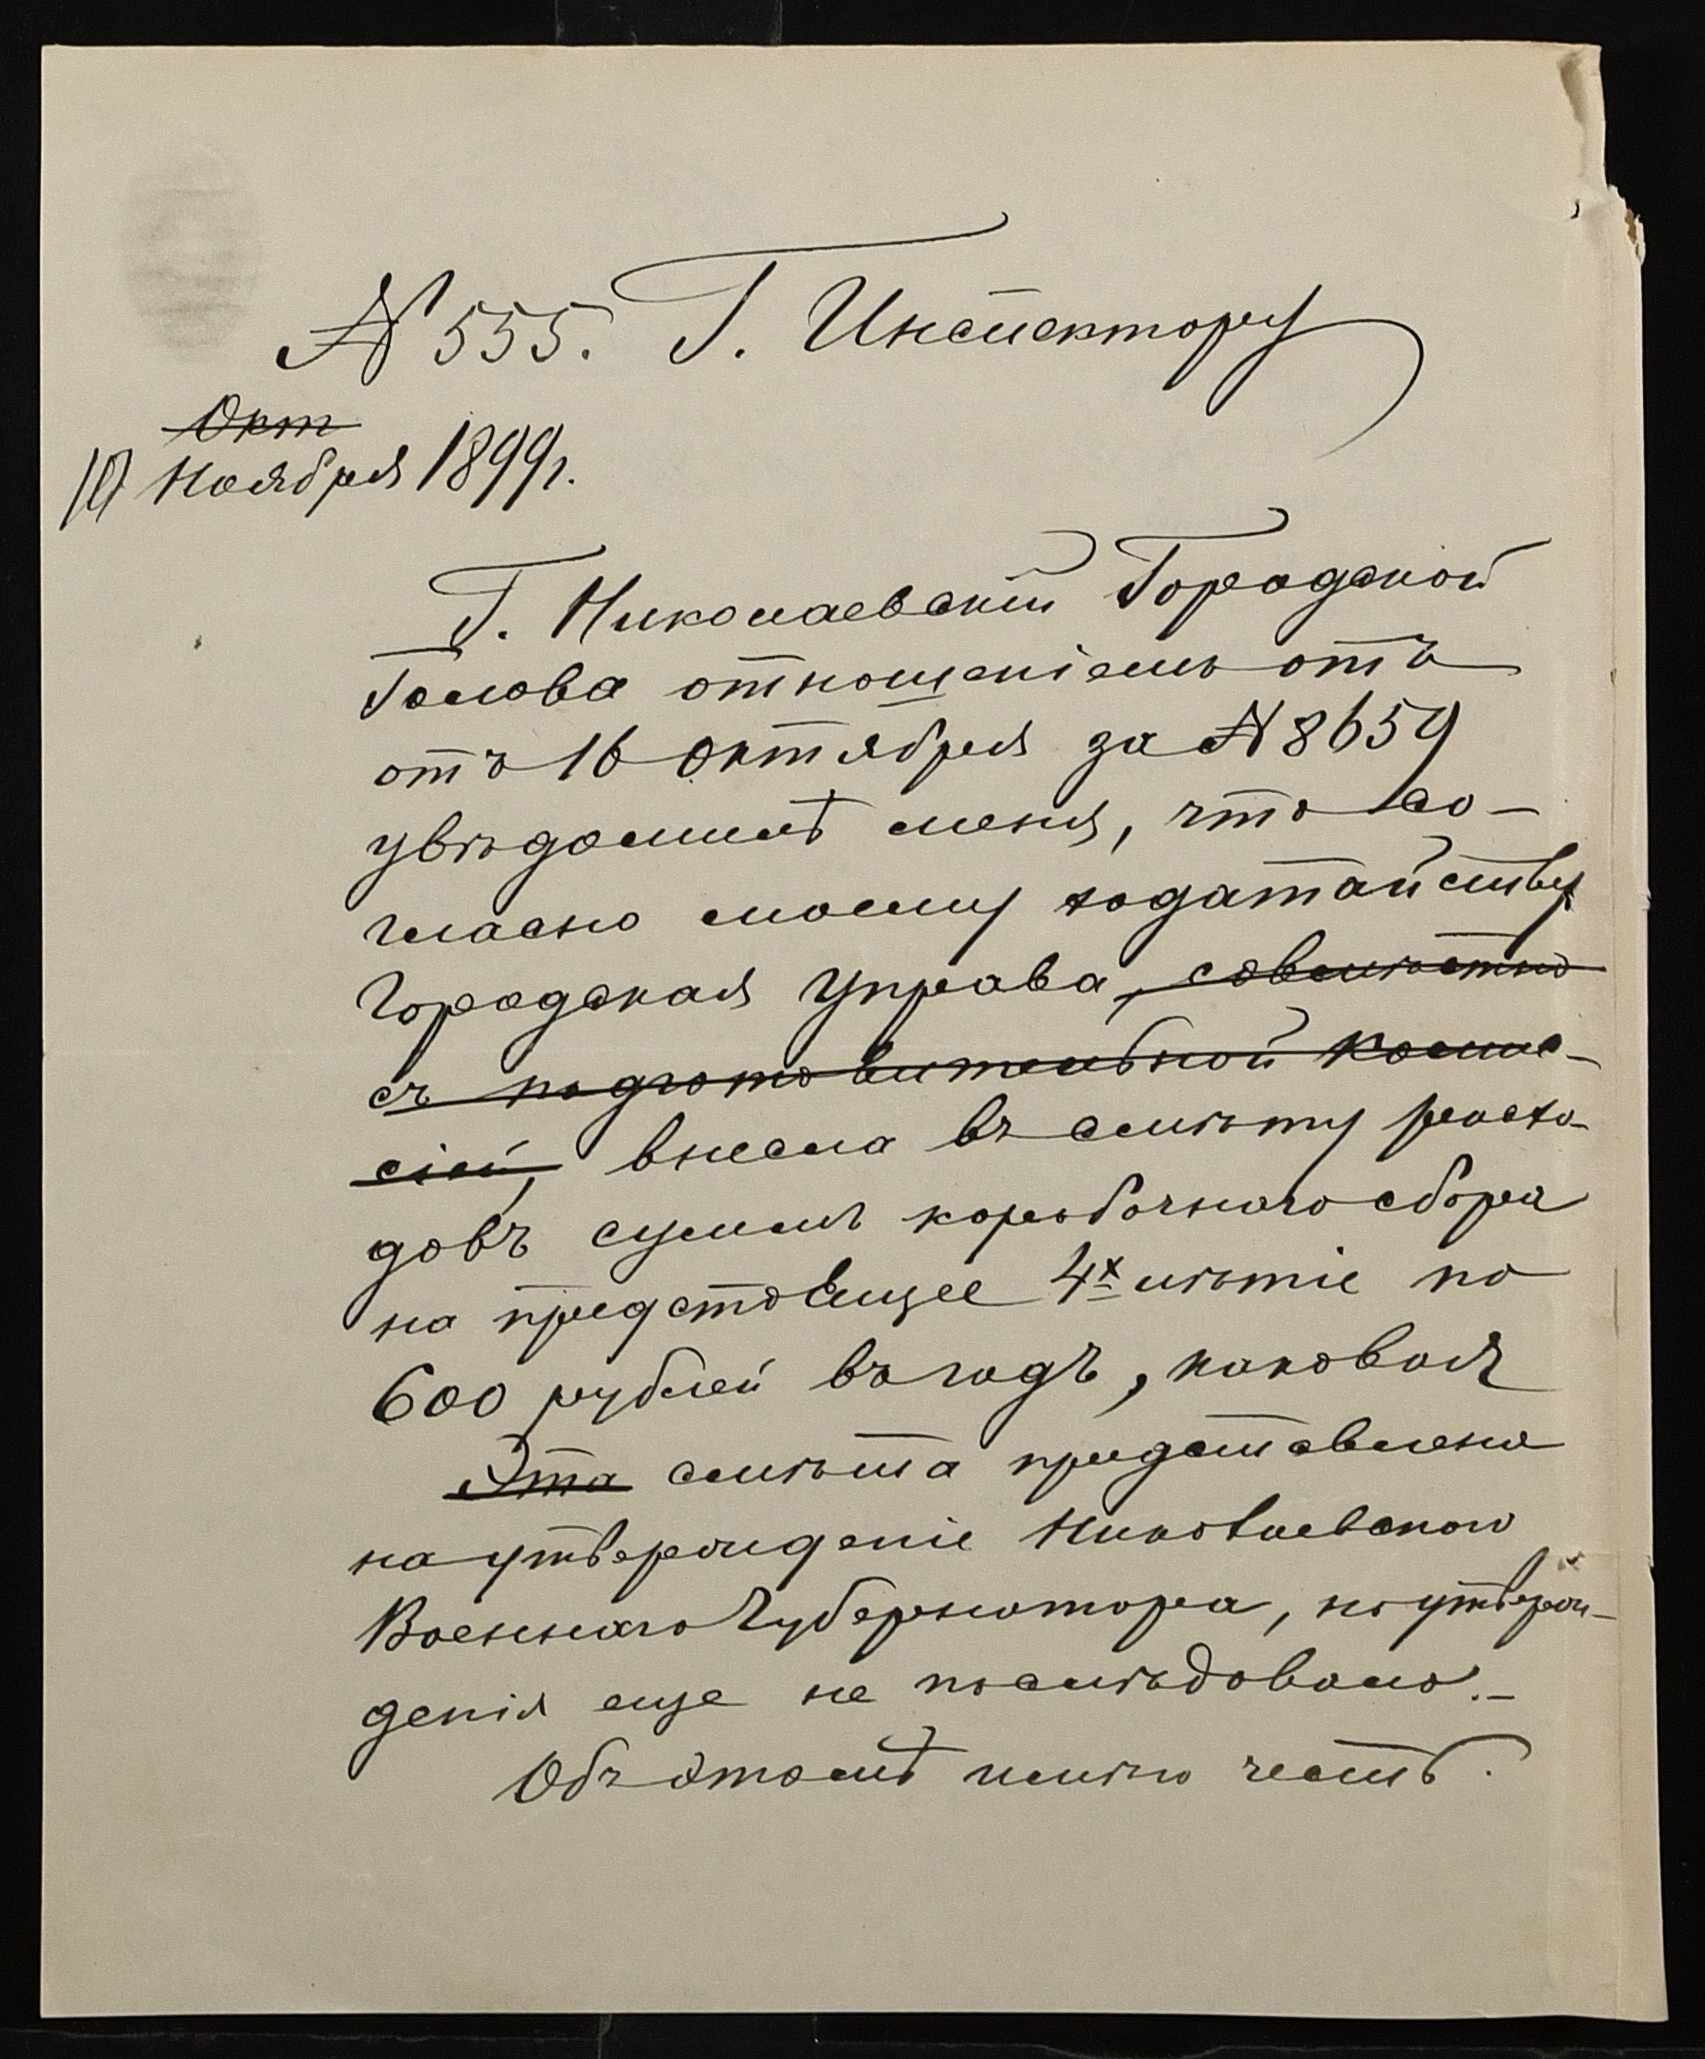 № 555. Г. Инспектору
Окт
10 Ноября 1899 г.
Г. Николаевскій Городской
Голова отношеніемъ отъ
отъ 16 Октября за № 8659
увѣдомилъ меня, что со-
гласно моему ходатайству
Городская Управа, совмѣстно
съ подготовительной комис-
сіей, внесла въ смѣту расхо-
довъ суммъ коробочнаго сбора
на предстоящее 4х лѣтіе по
600 рублей въ годъ, каковая
Эта смѣта представлена
на утвержденіе Николаевскаго
Военнаго Губернатора, но утверж-
денія еще не послѣдовало.-
Объ этомъ имѣю честь.